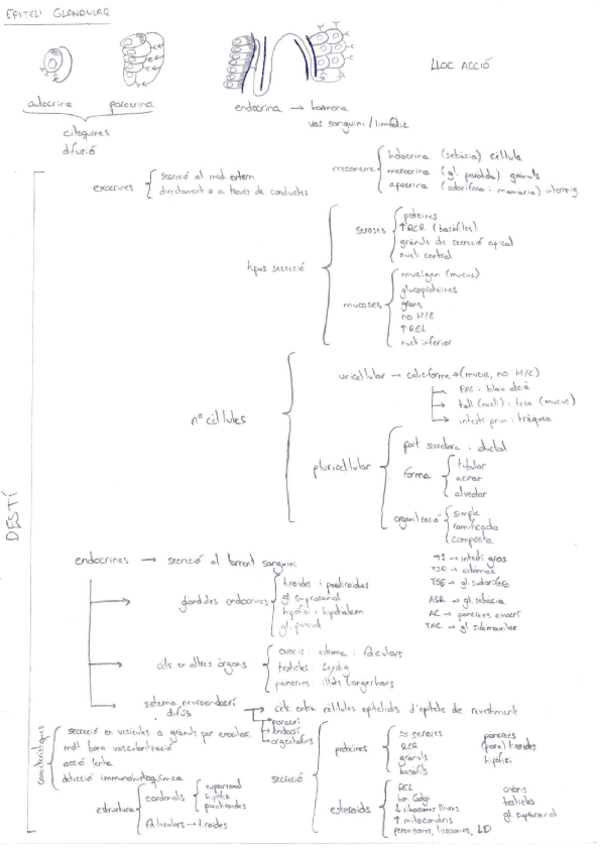 EPITELI GLANDULAR
LLOC ACCIÓ
autocrina paracrina
citoquines
difusió
endocrina → hormona
vas sanguini/limfàtic
exocrines
secreció al medi extern
directament o a través de conductes
mecanisme
holocrina (sebàcia) cèl·lula
merocrina (gl. paròtida) grànuls
apocrina (odorífera i mamària)
tipus secreció
seroses
proteines
↑RER (basòfiles)
grànuls de secreció apical
nucli central
mucoses
mucigen (mucus)
glucoproteines
grans
no H/E
↑REL
nucli inferior
nº cèl·lules
unicel·lular → caliciforme → (mucus, no H/E)
PAS i blau alcià
tall (nucli) i teca (mucus)
intestí prim i tràquea
pluricel·lular
part secretora i ductal
forma
tubular
acinar
alveolar
organització
simple
ramificada
composta
DESTÍ
endocrines → secreció al torrent sanguini
TS → intestí gros
TSR → estómac
TSE → gl. sudorípera
ASR → gl. sebàcia
AC → pàncrees exocrí
TAC → gl. submaxilar
glàndules endocrines
tiroides i paratiroides
gl suprarenal
hipòfisi i hipotàlem
gl. pineal
cèls en altres òrgans
ovaris: estroma i fol·liculars
testicles: Leydig
pàncrees: illots Langerhans
sistema neuroendocrí difús
cèls. entre cèl·lules epitelials d'epitelis de revestiment
paracrí
endocrí
argentafins
característiques
secreció en vesícules o grànuls per exocitosi
molt bona vascularització
acció lenta
detecció immunohistoquímica
estructura
cordonals
suprarrenal
hipòfisi
paratiroides
fol·liculars → tiroides
secreció
proteines
≈ seroses
RER
grànuls
basòfils
pàncrees
(para)tiroides
hipòfisi
esteroids
REL
bon Golgi
↓ ribosomes lliures
↑ mitocondris
peroxisomes, lisosomes, LD
ovaris
testicles
gl suprarenal